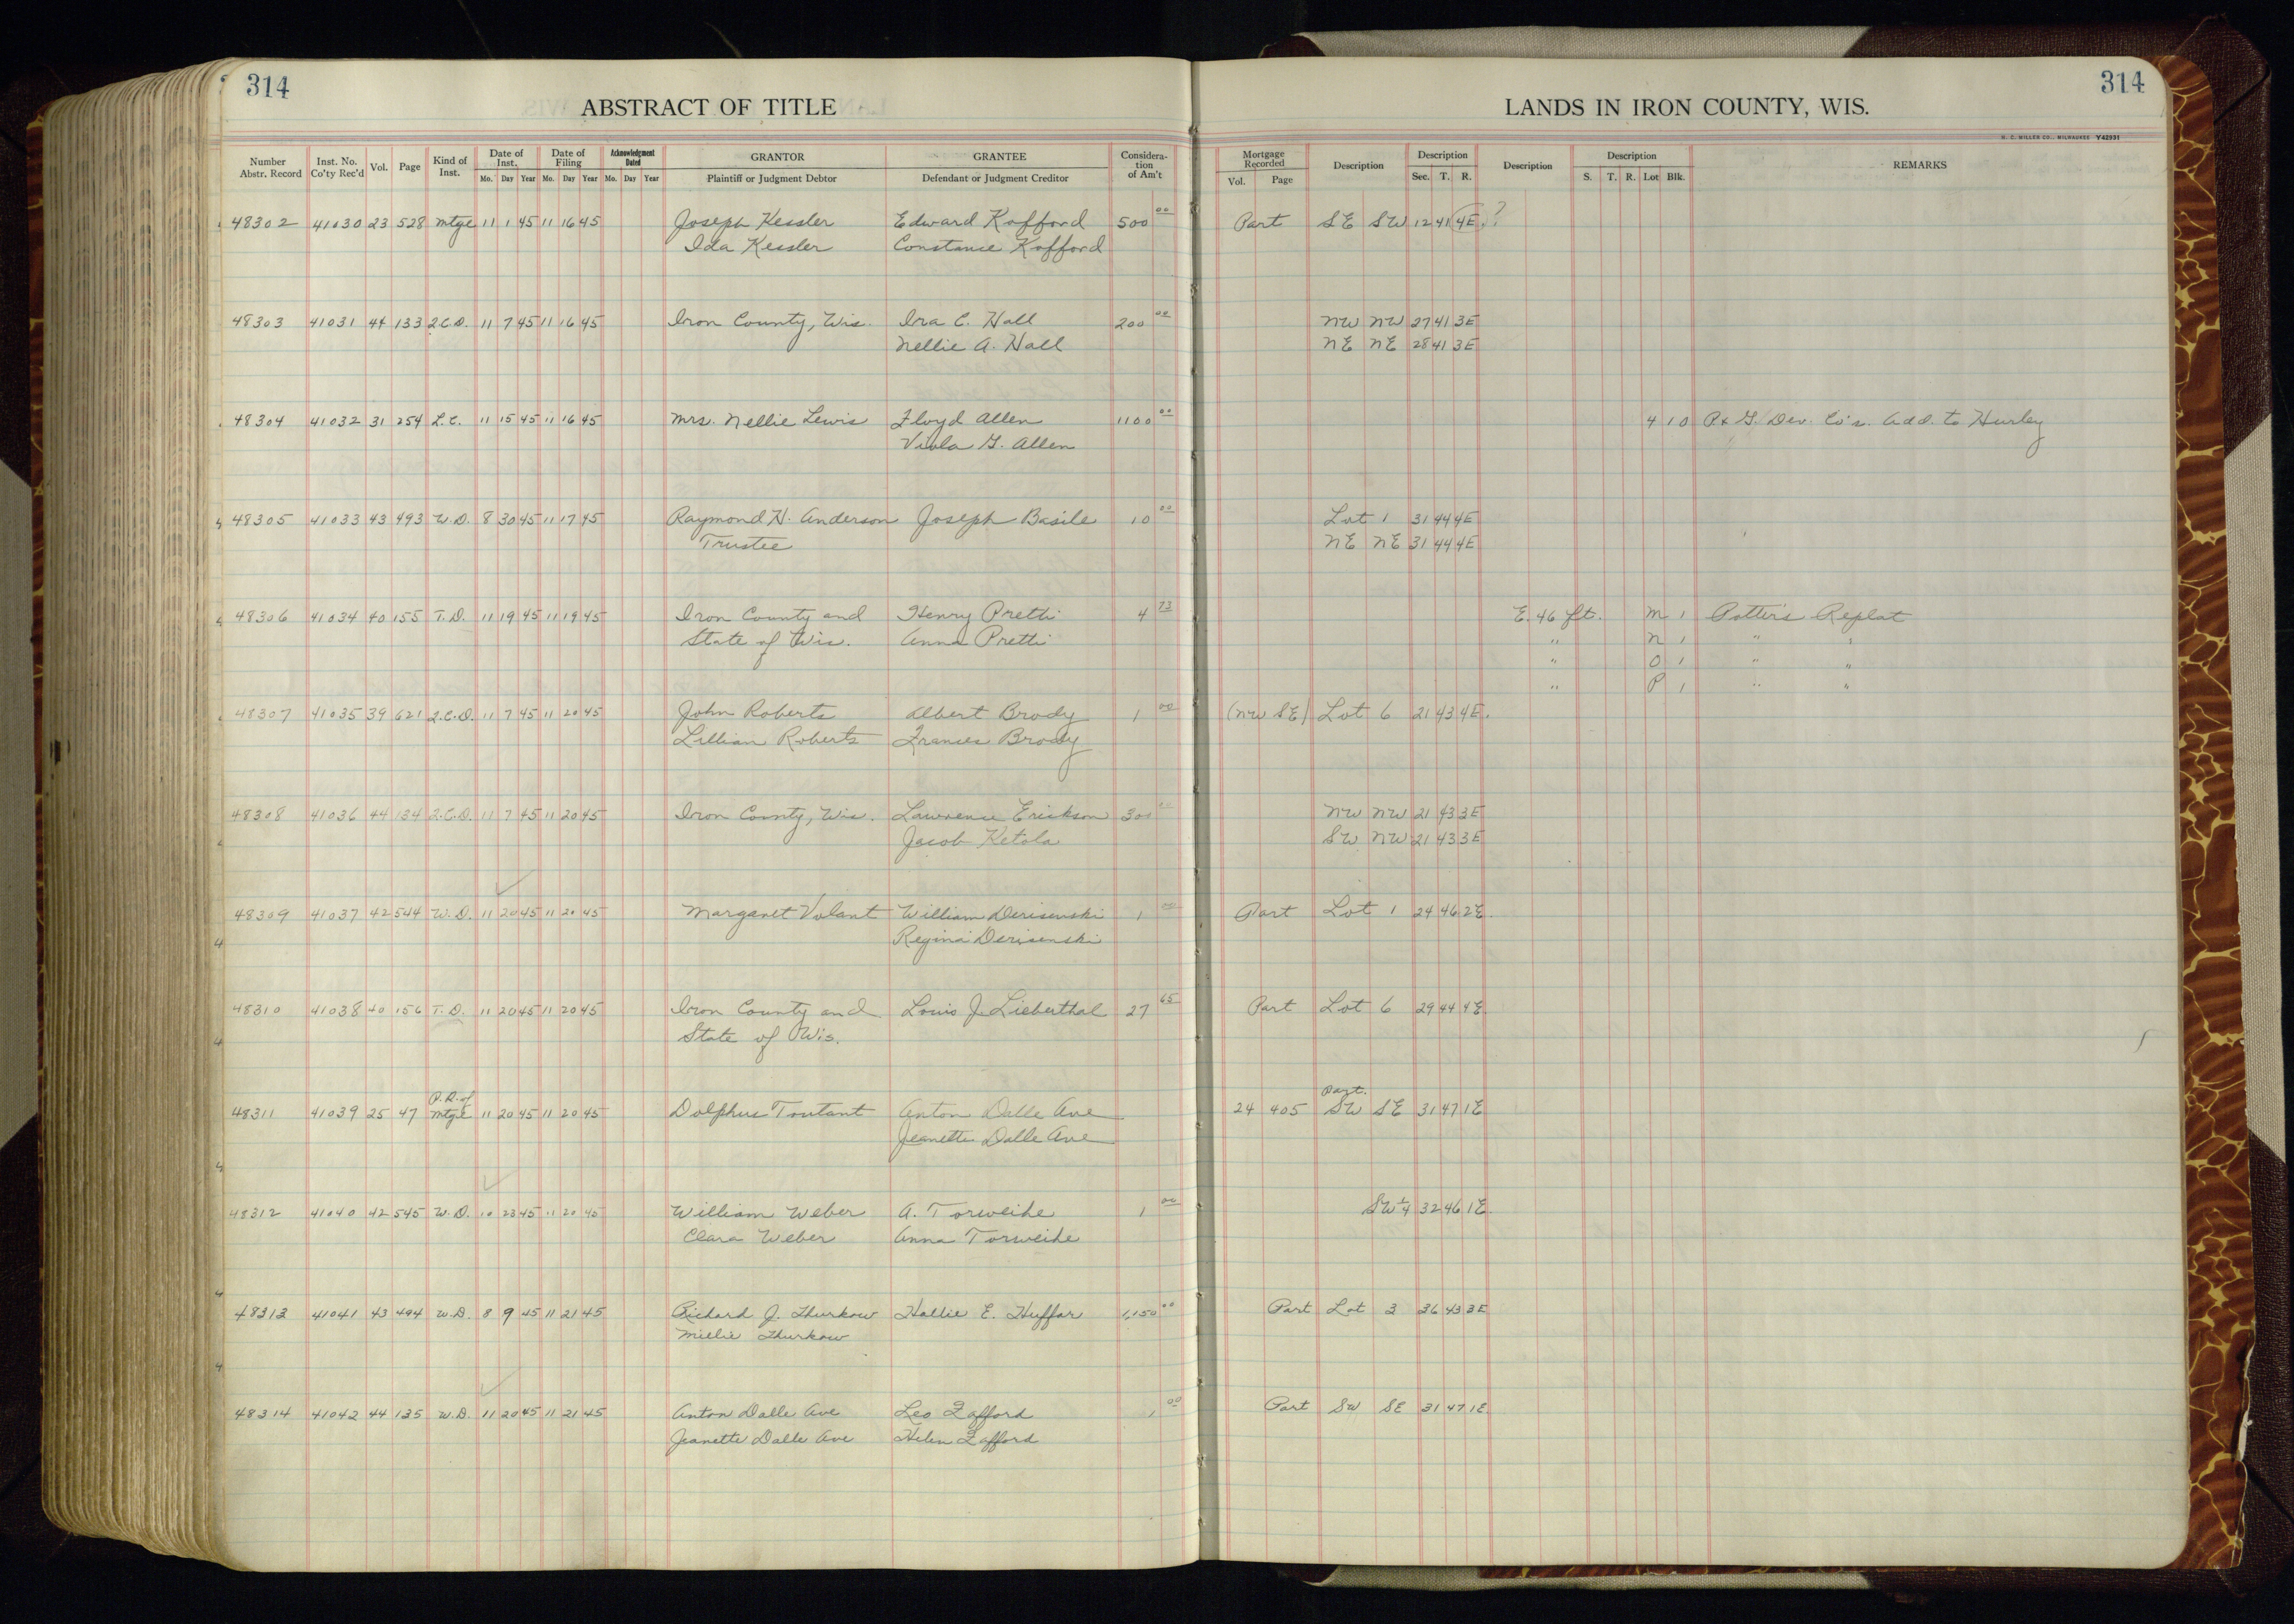 314
314
ABSTRACT OF TITLE
LANDS IN IRON COUNTY, WIS.
H. C. MILLER CO., MILWAUKEE Y42931
Number Abstr. Record Inst. No. Co'ty Rec'd Vol. Page Kind of Inst. Date of Inst. Mo. Day Year Date of Filing Mo. Day Year Acknowledgment Dated Mo. Day Year GRANTOR Plaintiff or Judgment Debtor GRANTEE Defendant or Judgment Creditor Considera-tion of Am't Mortgage Recorded Vol. Page Description Description Sec. T. R. Description Description S. T. R. Lot Blk. REMARKS
48302 41030 23 528 Mtge 11 1 45 11 16 45 Joseph Kessler Edward Kofford 500 00 Part SE SW 12 41 4E ?
Ida Kessler Constance Kofford
48303 41031 44 133 2.C.D. 11 7 45 11 16 45 Iron County, Wis. Ira C. Hall 200 00 NW NW 27 41 3E
Nellie A. Hall NE NE 28 41 3E
48304 41032 31 254 L.C. 11 15 45 11 16 45 Mrs. Nellie Lewis Floyd Allen 1100 00 4 10 P+ G. Dev. Co's. Add. to Hurley
Viola G. Allen
48305 41033 43 493 W.D. 8 30 45 11 17 45 Raymond H. Anderson Joseph Basile 10 00 Lot 1 31 44 4E
Trustee NE NE 31 44 4E
48306 41034 40 155 T.D. 11 19 45 11 19 45 Iron County and Henry Pretti 4 73 E. 46 ft. M 1 Potter's Replat
State of Wis. Anna Pretti " N 1 " "
" O 1 " "
" P 1 " "
48307 41035 39 621 2.C.D. 11 7 45 11 20 45 John Roberts Albert Brody 1 00 (NW SE) Lot 6 21 43 4E.
Lillian Roberts Frances Brody
48308 41036 44 134 2.C.D. 11 7 45 11 20 45 Iron County, Wis. Lawrence Erickson 300 00 NW NW 21 43 3E
Jacob Ketola SW NW 21 43 3E
48309 41037 42 544 W.D. 11 20 45 11 20 45 Margaret Volant William Derisenski 1 00 Part Lot 1 24 46 2E.
Regina Derisenski
48310 41038 40 156 T.D. 11 20 45 11 20 45 Iron County and Louis J. Lieberthal 27 65 Part Lot 6 29 44 4E.
State of Wis.
P.R. of Part.
48311 41039 25 47 Mtge 11 20 45 11 20 45 Dolphus Toutant Anton Dalle Ave 24 405 SW SE 31 47 1E
Jeanette Dalle Ave
48312 41040 42 545 W.D. 10 23 45 11 20 45 William Weber A. Torweihe 1 00 SW 1/4 32 46 1E.
Clara Weber Anna Torweihe
48313 41041 43 494 W.D. 8 9 45 11 21 45 Richard J. Thurkow Hallie E. Huffar 1,150 00 Part Lot 3 36 43 3E
Millie Thurkow
48314 41042 44 135 W.D. 11 20 45 11 21 45 Anton Dalle Ave Leo Zafford 1 00 Part SW SE 31 47 1E
Jeanette Dalle Ave Helen Zafford